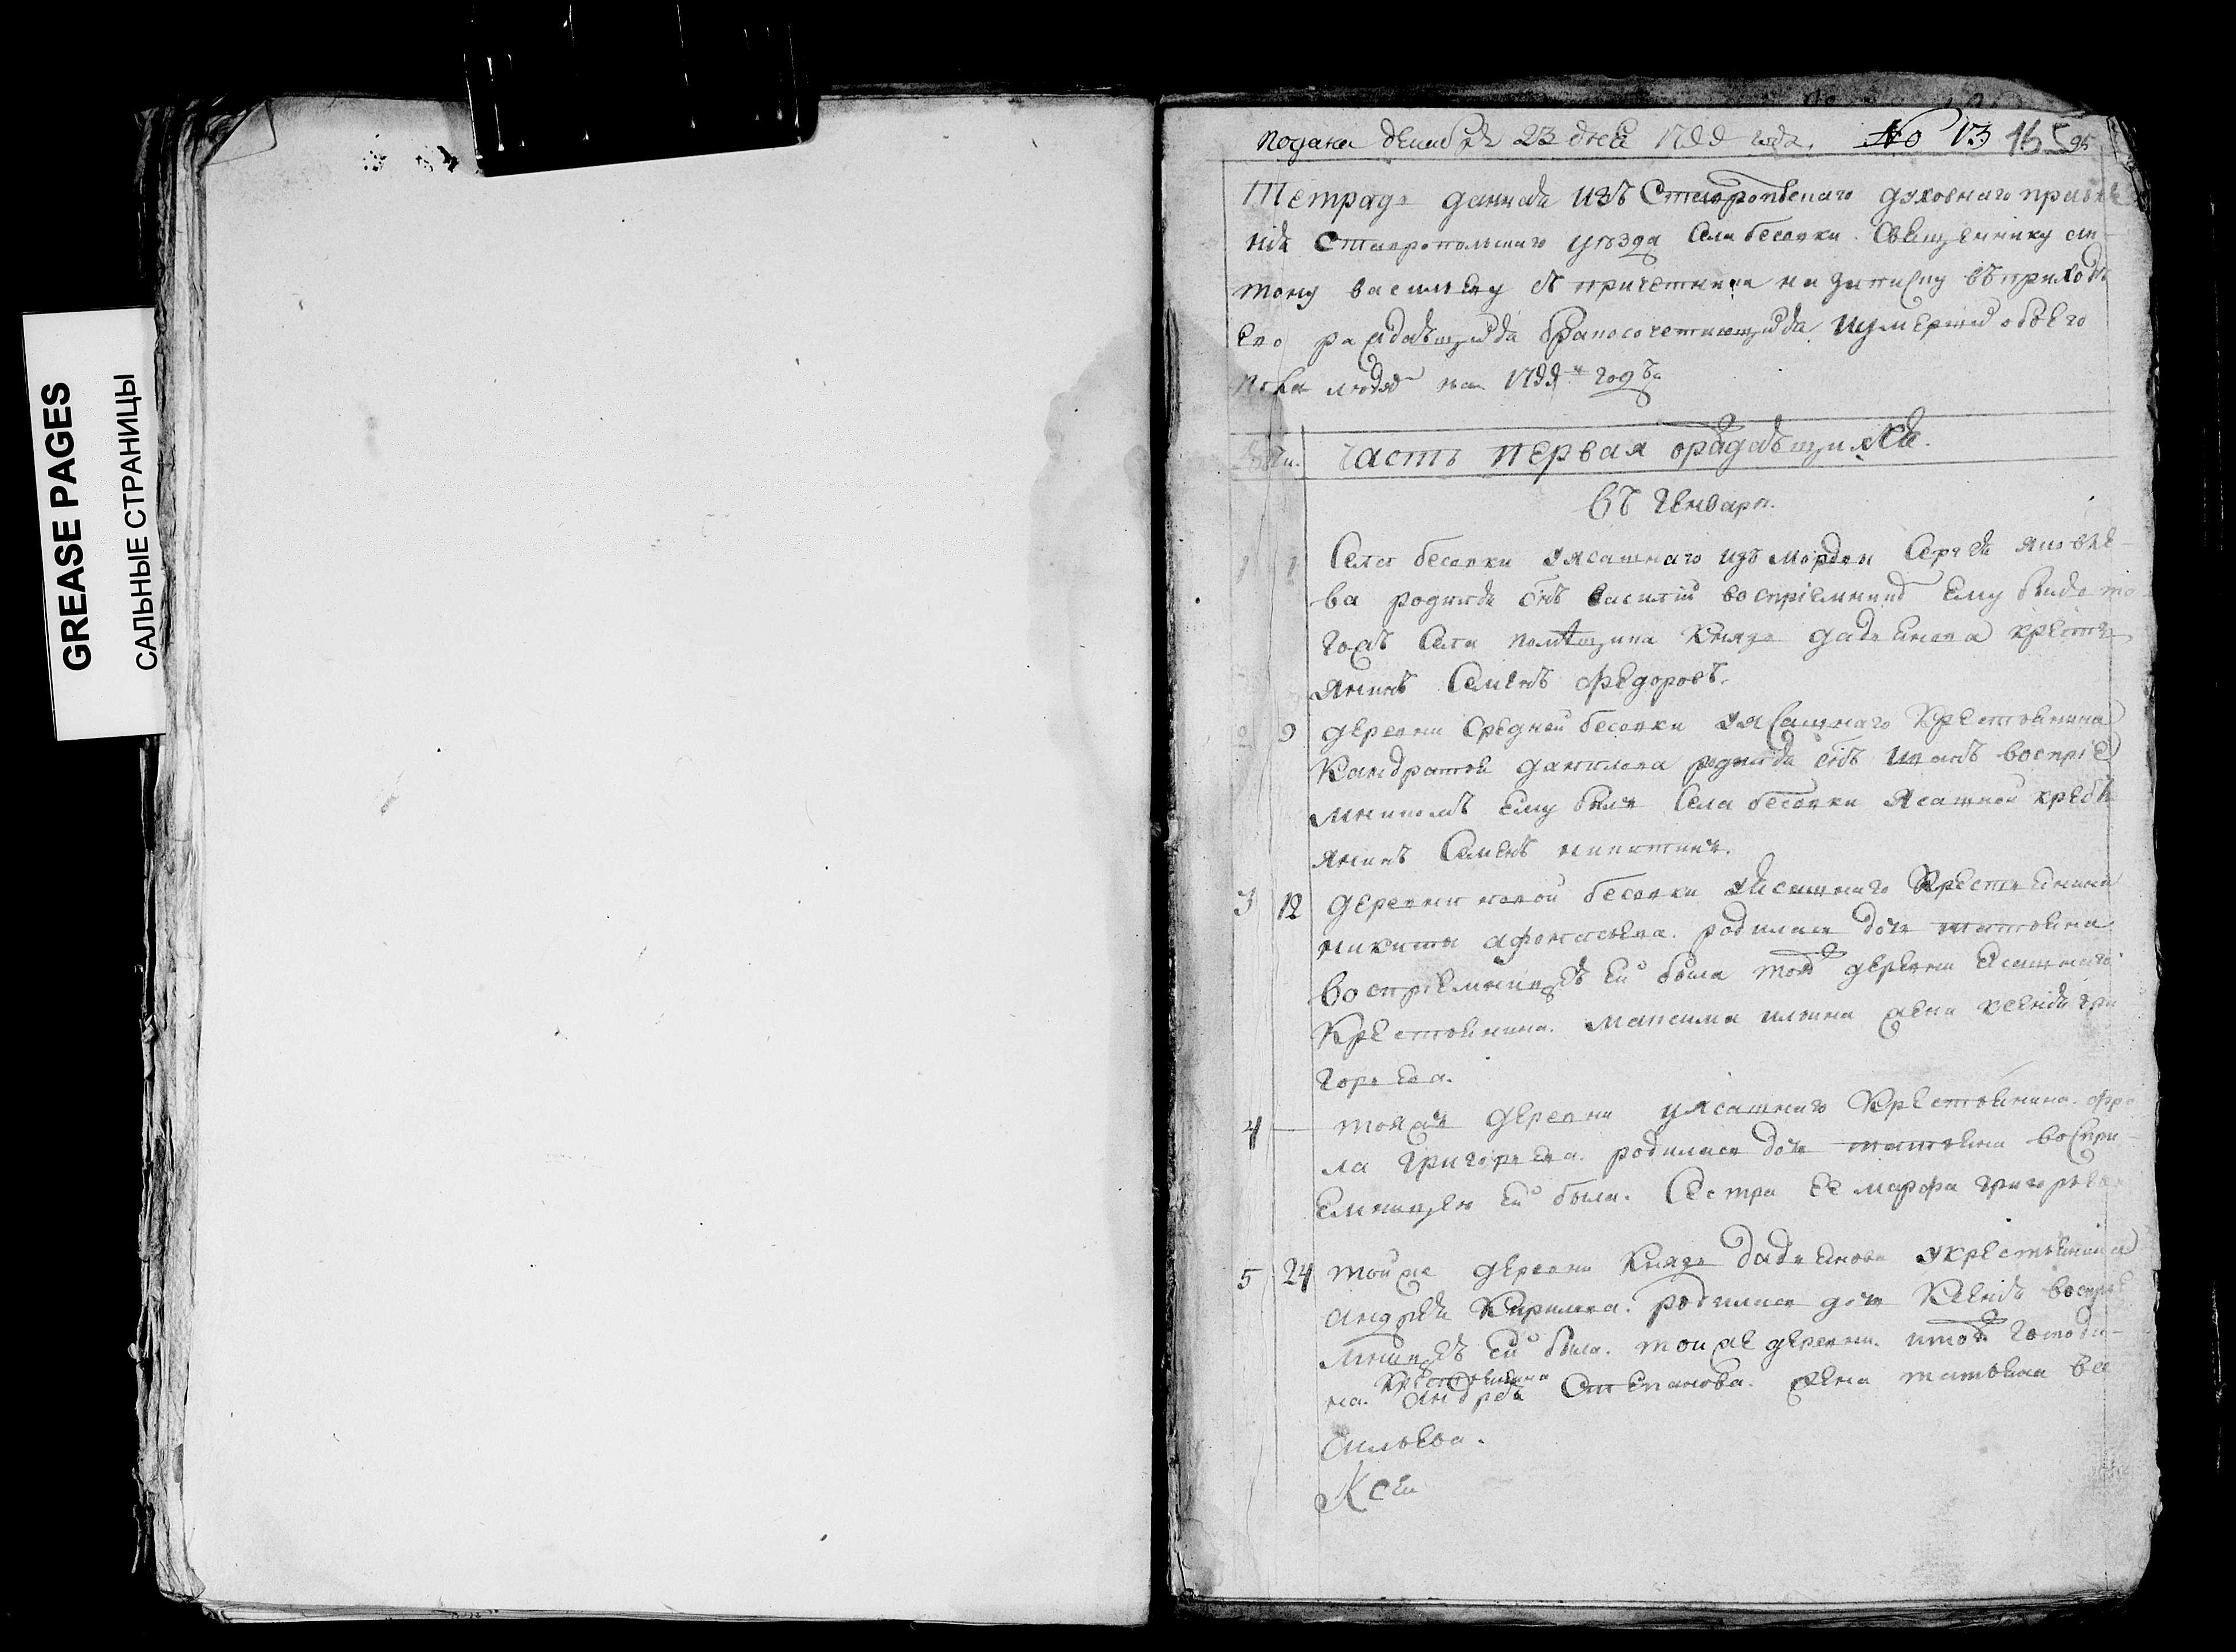 GREASE PAGES
САЛЬНЫЕ СТРАНИЦЫ
подана декабря 23 дня года. No 13 165
Тетрадь данная изъ Ставропольскаго духовнаго правле
нія Ставропольскаго уѣзда села бесовки священнику
василеву съ причетники на записку въ приходѣ
ево раждающихся бракосочетающихся и умерших обоего
пола людей на годъ
часть первая о раждающихся.
въ генварѣ.
1 1 Села бесовки у ясашнаго изъ мордвы Сергѣя яковле-
ва родился снъ василій воспріемникъ ему былъ то
гожъ села помѣщика Князя крестья
янинъ Семенъ федоровъ.
2 9 деревни средней бесовки у ясашнаго крестьянина
Кандратья данилова родился снъ иванъ воспріе
мникомъ ему былъ села бесовки ясашной кресть
янинъ Семенъ никитинъ.
3 12 деревни новой бесовки у ясашнаго крестьянина
никиты афонасьева. родилась дочь татьяна
воспріемницею ей была той деревни ясашнаго
крестьянина. максима ильина жена ксенія гри
горьева.
4 — тояжъ деревни у ясашнаго крестьянина. фро
ла григорьева. родилась дочь татьяна воспри-
емницею ей была. Сестра ее марфа григорьева
5 24 тойже деревни Князя у крестьянина
андрея Кирилова. родилась дочь Ксенія воспріе
мницею ей была. тойже деревни. господи-
на. крестьянина андрея Степанова. жена татьяна ва
сильева.
Ксен